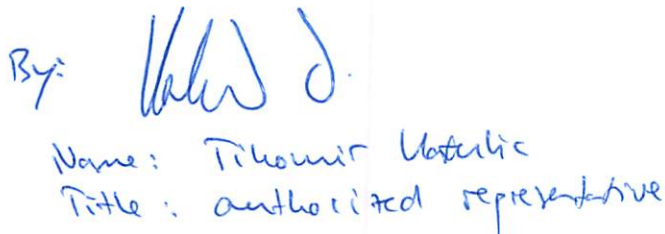 By:
Name: Tihomir Katulic
Title: authorized representative